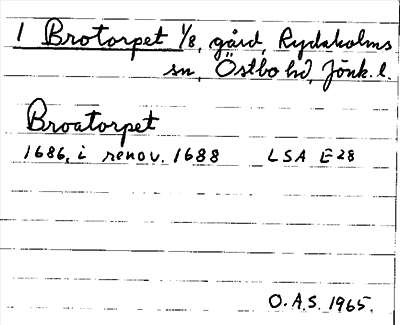 1 Brotorpet 1/8, gård, Rydaholms
sn, Östbo hd, Jönk. l.
Broatorpet
1686, i renov. 1688 LSA E28
O.A.S. 1965.